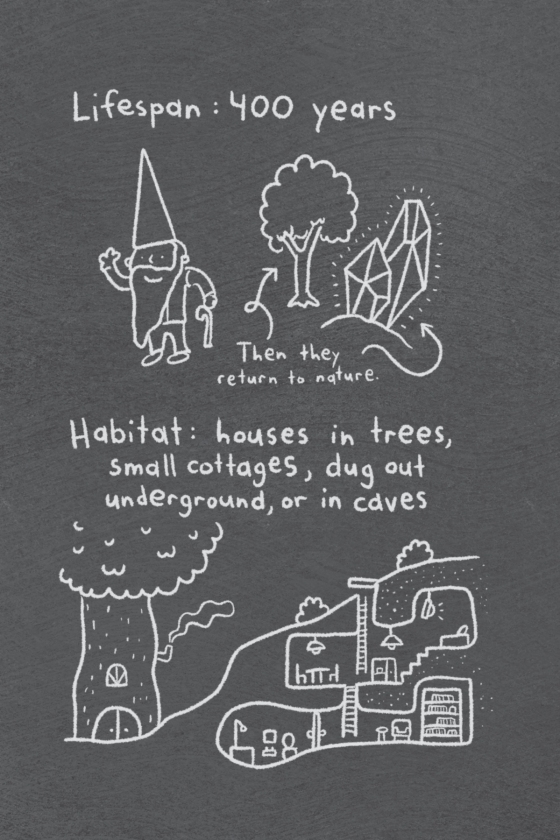 Lifespan: 400 years
Then they
return to nature.
Habitat: houses in trees,
small cottages, dug out
underground, or in caves